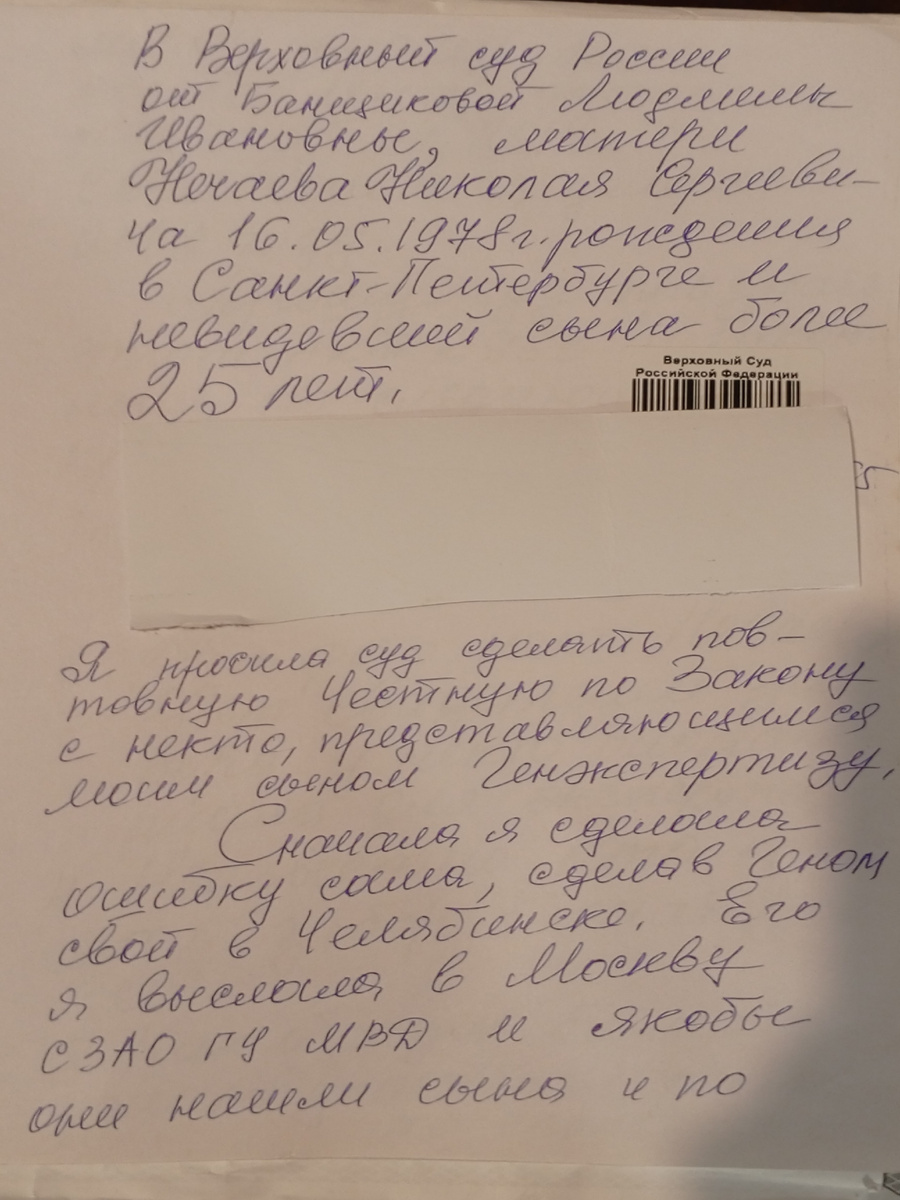 В Верховный суд России
от Банщиковой Людмилы
Ивановны, матери
Нечаева Николая Сергееви-
ча 16.05.1978г. рождения
в Санкт-Петербурге и
невидевшей сына более
25 лет.
Верховный Суд
Российской Федерации
Я просила суд сделать пов-
товную Честную по Закону
с некто, представляющимся
моим сыном Генэкспертизу,
Сначала я сделала
ошибку сама, сделав Геном
свой в Челябинске. Его
я выслала в Москву
СЗАО ГУ МВД и якобы
они нашли сына и по